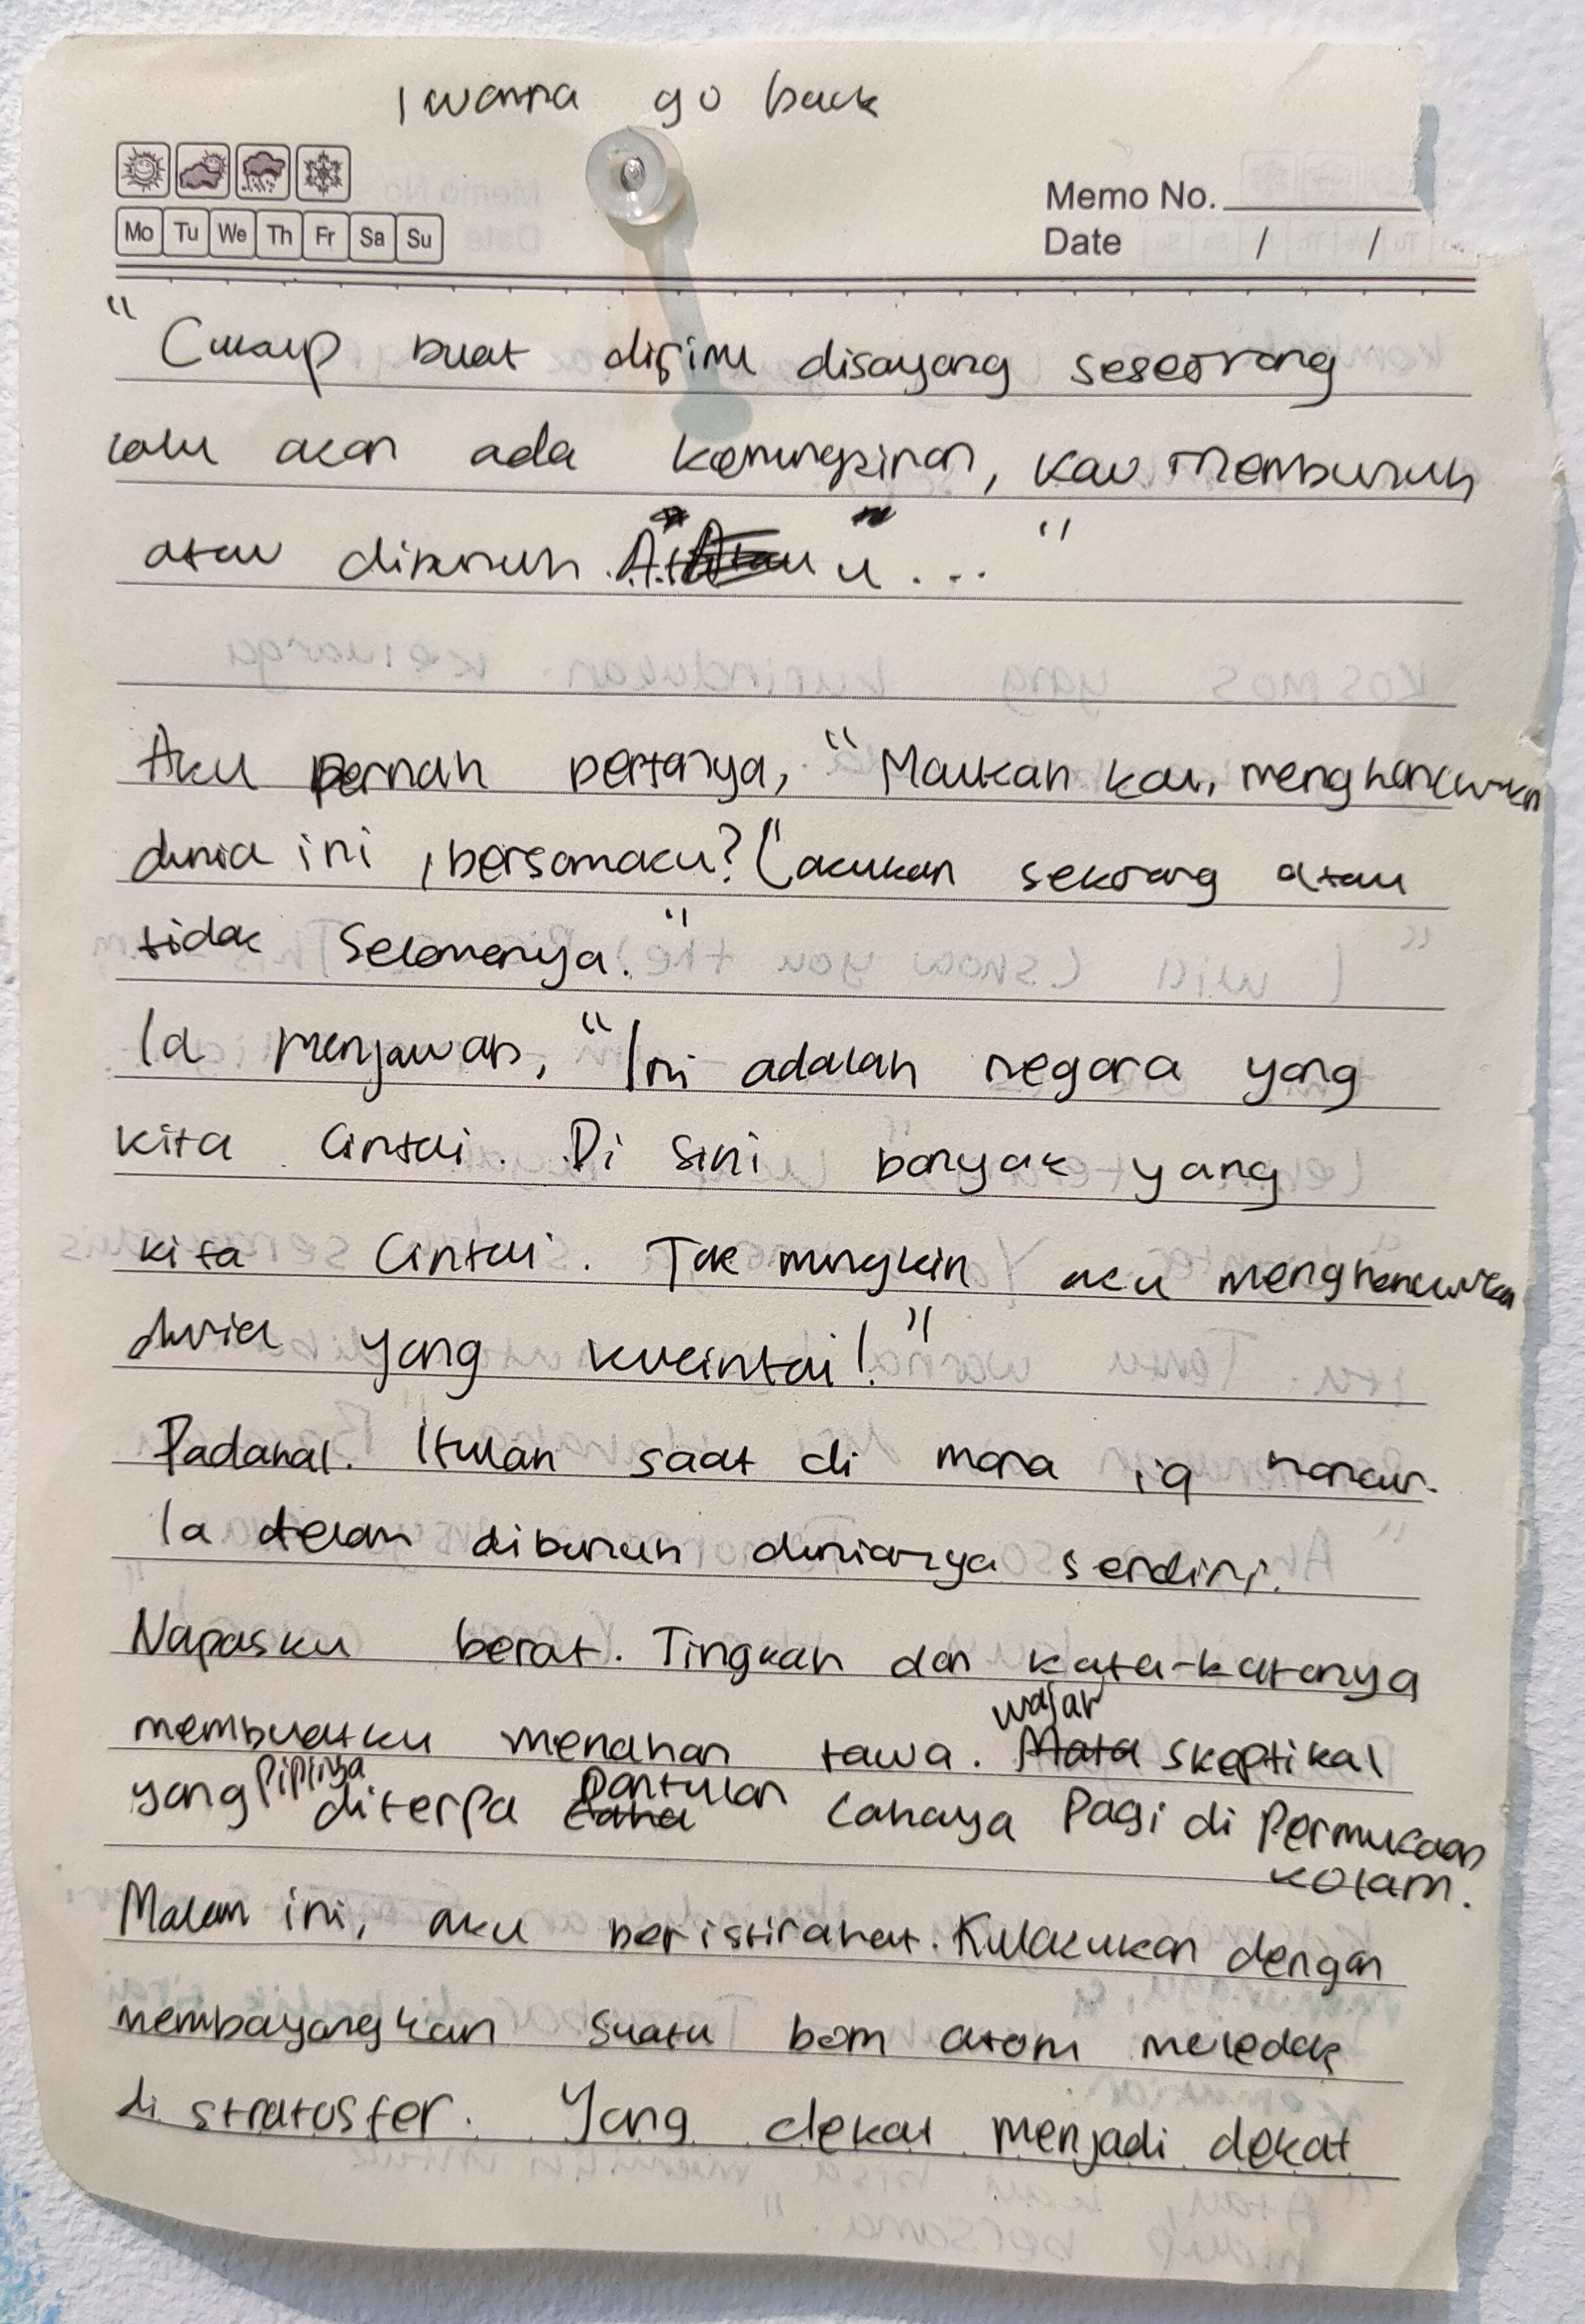 I wanna go back
Memo No.
Mo Tu We Th Fr Sa Su
Date / /
"Cukup buat dirimu disayang seseorang
lalu akan ada kemungkinan, kau membunuh
atau dibunuh. ..."
Aku pernah bertanya, "Maukah kau, menghancurkan
dunia ini, bersamaku? Lakukan sekarang atau
tidak selamanya."
Ia menjawab, "Ini adalah negara yang
kita cintai. Di sini banyak yang
kita cintai. Tak mungkin aku menghancurkan
dunia yang kucintai!"
Padahal. Itulah saat di mana ia hancur.
Ia telah dibunuh dunianya sendiri.
Napasku berat. Tingkah dan kata-katanya
membuatku menahan tawa. Wajah skeptikal
yang pipinya diterpa pantulan cahaya pagi di permukaan
kolam.
Malam ini, aku beristirahat. Kulakukan dengan
membayangkan suatu bom atom meledak
di stratosfer. Yang dekat menjadi dekat